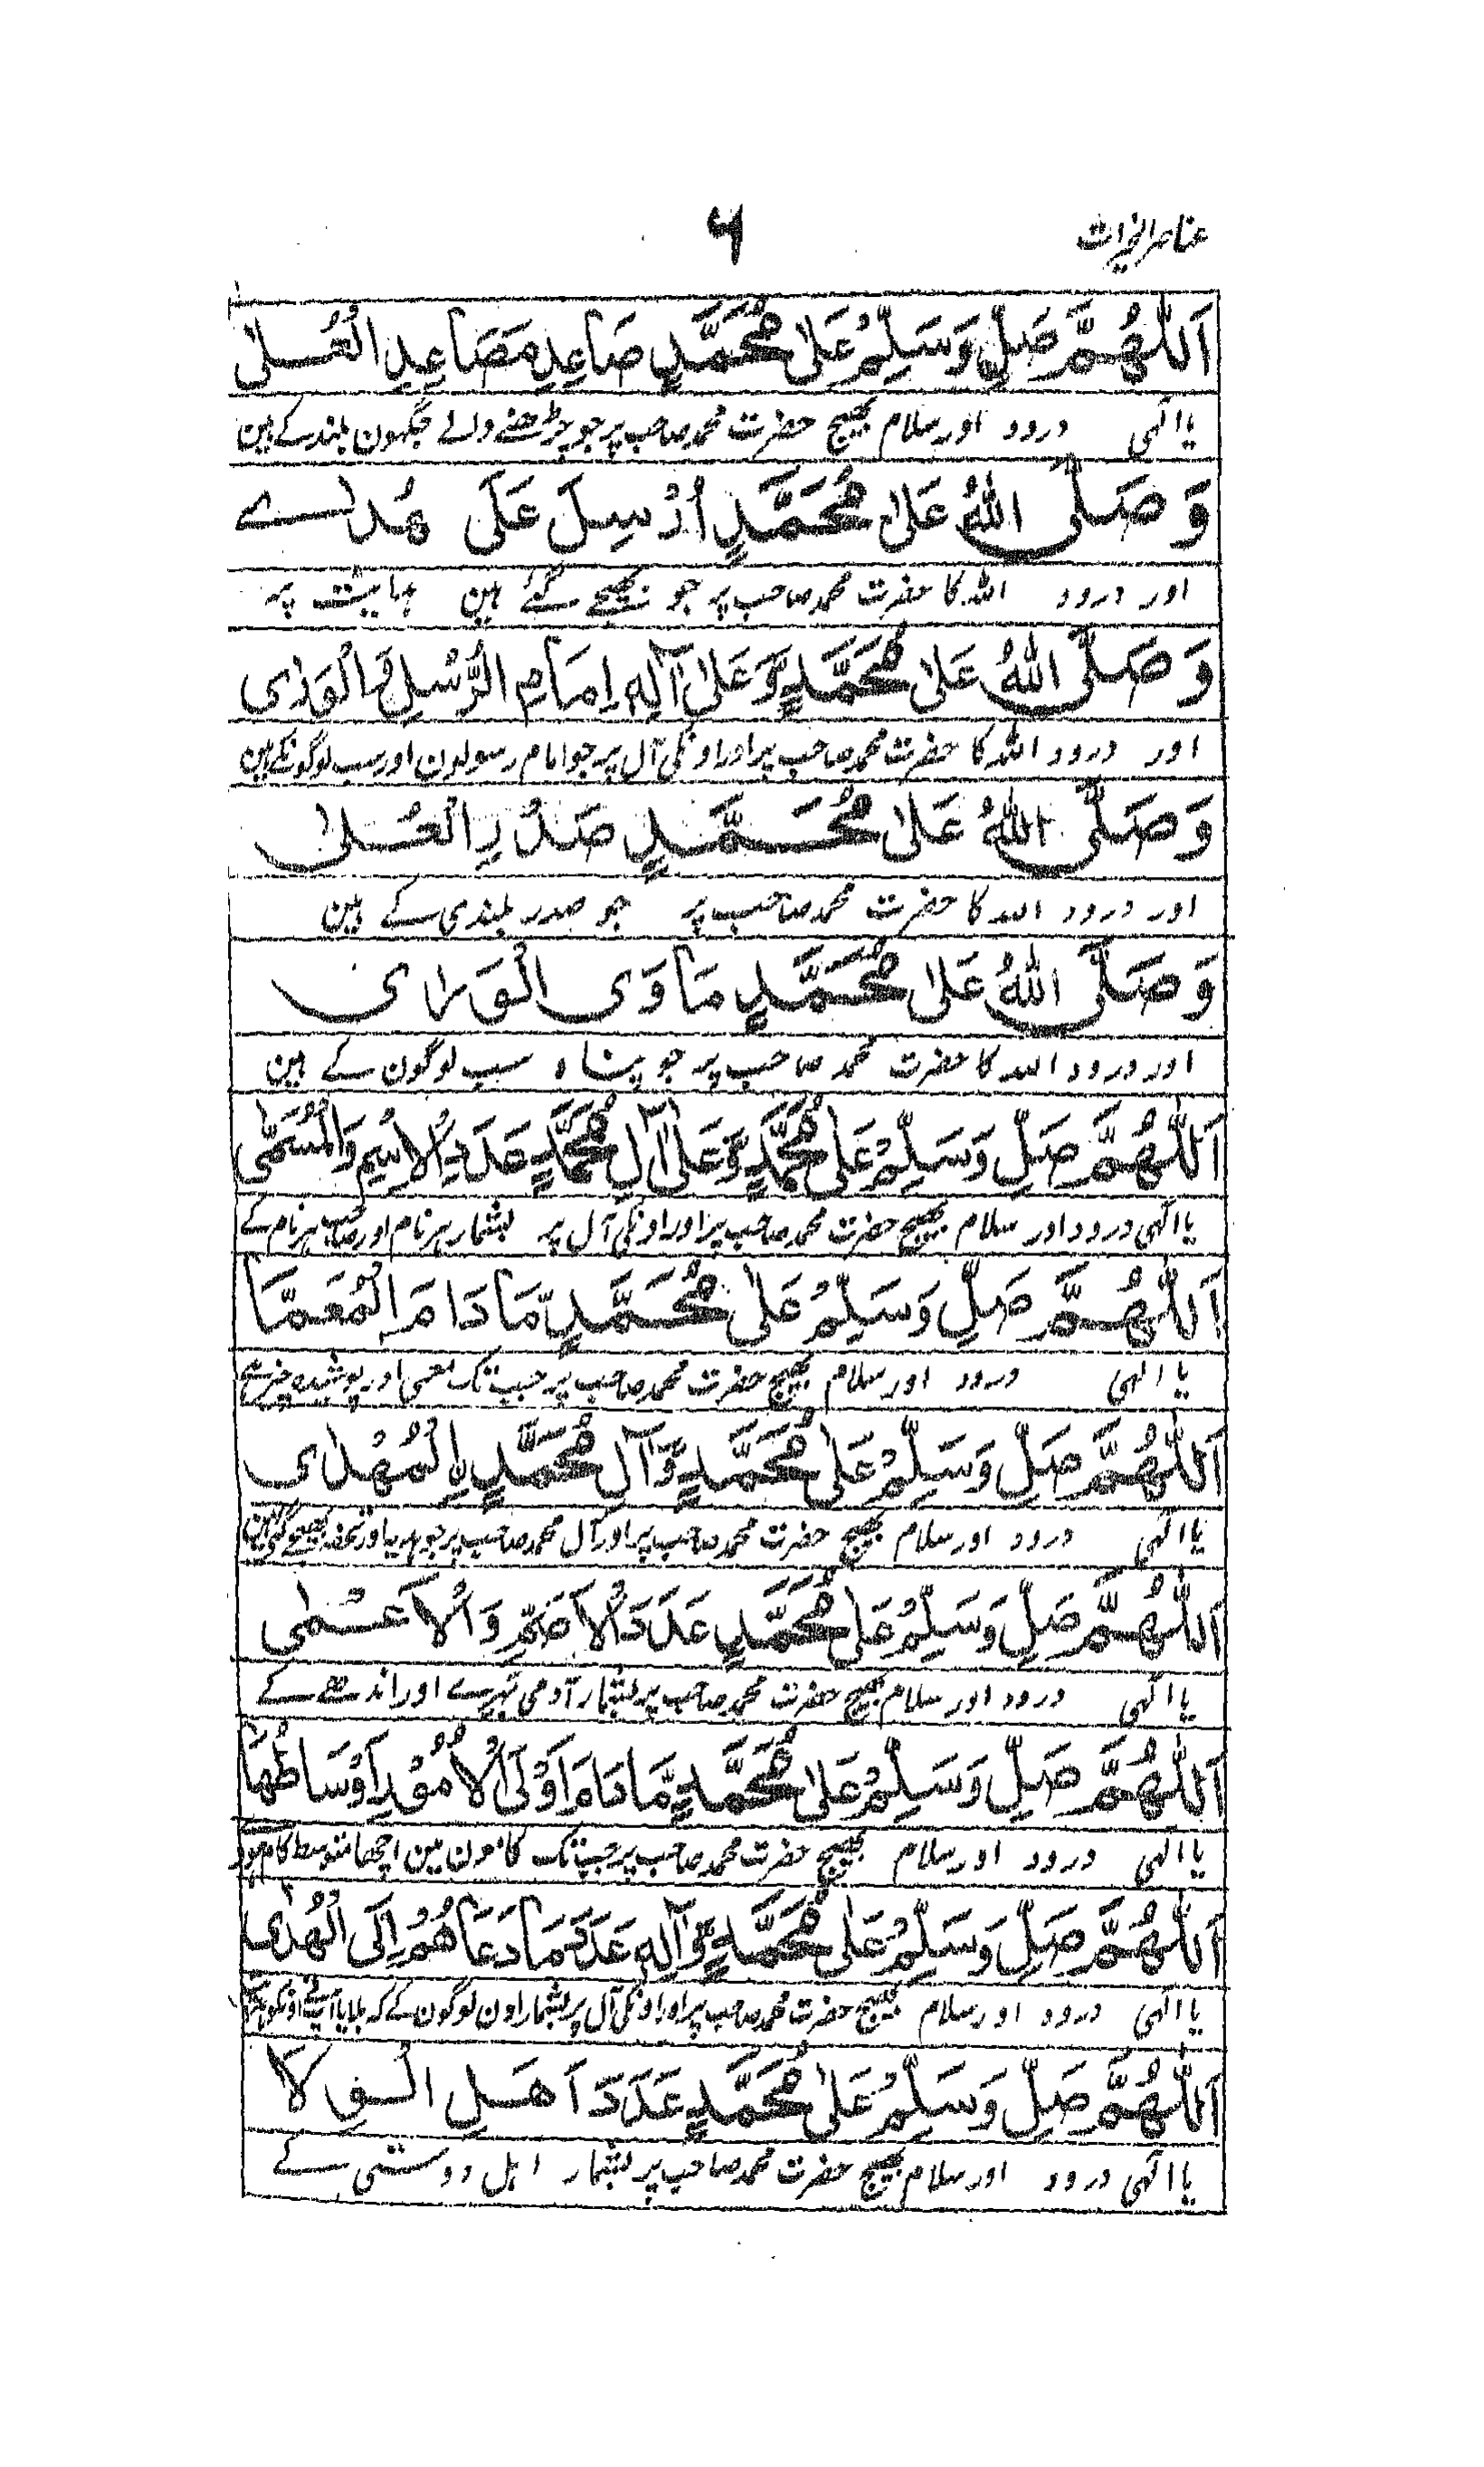 عناصر الخیرات
۶
اَللّٰهُمَّ صَلِّ وَسَلِّمْ عَلٰى مُحَمَّدٍ صَاعِدِ مَصَاعِدِ الْعُلٰى
یا الٰہی درود اور سلام بھیج حضرت محمد صاحب پر جو چڑھنے والے جگہون بلند کے ہین
وَصَلَّى اللّٰهُ عَلٰى مُحَمَّدٍ اُرْسِلَ عَلَى هُدٰے
اور درود اللہ کا حضرت محمد صاحب پر جو بھیجے گئے ہین ہدایت پر
وَصَلَّى اللّٰهُ عَلٰى مُحَمَّدٍ وَّعَلٰى آلِهٖ اِمَامِ الرُّسْلِ وَالْوَرٰى
اور درود اللہ کا حضرت محمد صاحب پر اور اونکی آل پر جو امام رسولون اور سب لوگونکے ہین
وَصَلَّى اللّٰهُ عَلٰى مُحَمَّدٍ صَدْرِ الْعُلٰى
اور درود اللہ کا حضرت محمد صاحب پر جو صدر بلندی کے ہین
وَصَلَّى اللّٰهُ عَلٰى مُحَمَّدٍ مَاوَى الْوَرٰى
اور درود اللہ کا حضرت محمد صاحب پر جو پناہ سب لوگون کے ہین
اَللّٰهُمَّ صَلِّ وَسَلِّمْ عَلٰى مُحَمَّدٍ وَّعَلٰى آلِ مُحَمَّدٍ عَدَدَ الْاِسْمِ وَالْمُسَمّٰى
یا الٰہی درود اور سلام بھیج حضرت محمد صاحب پر اور اونکی آل پر بشمار ہر نام اور صاحب ہر نام کے
اَللّٰهُمَّ صَلِّ وَسَلِّمْ عَلٰى مُحَمَّدٍ مَّا دَامَ الْمُعَمَّا
یا الٰہی درود اور سلام بھیج حضرت محمد صاحب پر جب تک معمی اور پوشیدہ چیز ہے
اَللّٰهُمَّ صَلِّ وَسَلِّمْ عَلٰى مُحَمَّدٍ وَّآلِ مُحَمَّدٍ الْمُهْدٰى
یا الٰہی درود اور سلام بھیج حضرت محمد صاحب پر اور آل محمد صاحب پر جو ہدیہ اور تحفہ بھیجے گئے ہین
اَللّٰهُمَّ صَلِّ وَسَلِّمْ عَلٰى مُحَمَّدٍ عَدَدَ الْاَصَمِّ وَالْاَعْمٰى
یا الٰہی درود اور سلام بھیج حضرت محمد صاحب پر بشمار آدمی بہرے اور اندھے کے
اَللّٰهُمَّ صَلِّ وَسَلِّمْ عَلٰى مُحَمَّدٍ مَّا دَامَ اَوْلَى الْاُمُوْرِ اَوْسَاطُهَا
یا الٰہی درود اور سلام بھیج حضرت محمد صاحب پر جب تک کامون مین اچھا متوسط کام ہو
اَللّٰهُمَّ صَلِّ وَسَلِّمْ عَلٰى مُحَمَّدٍ وَّآلِهٖ عَدَدَ مَا دَعَاهُمْ اِلَى الْهُدٰى
یا الٰہی درود اور سلام بھیج حضرت محمد صاحب پر اور اونکی آل پر بشمار اون لوگون کے کہ بلایا آپ نے اونکو
اَللّٰهُمَّ صَلِّ وَسَلِّمْ عَلٰى مُحَمَّدٍ عَدَدَ اَهْلِ الْوِلَا
یا الٰہی درود اور سلام بھیج حضرت محمد صاحب پر بشمار اہل دوستی کے